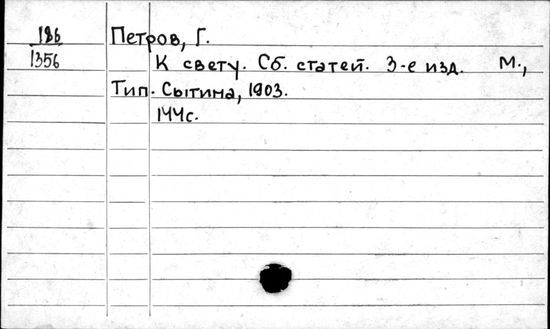 186
1356
Петров, Г.
К свету. Сб. статей. 3-е изд. М.,
Тип. Сытина, 1903.
144с.